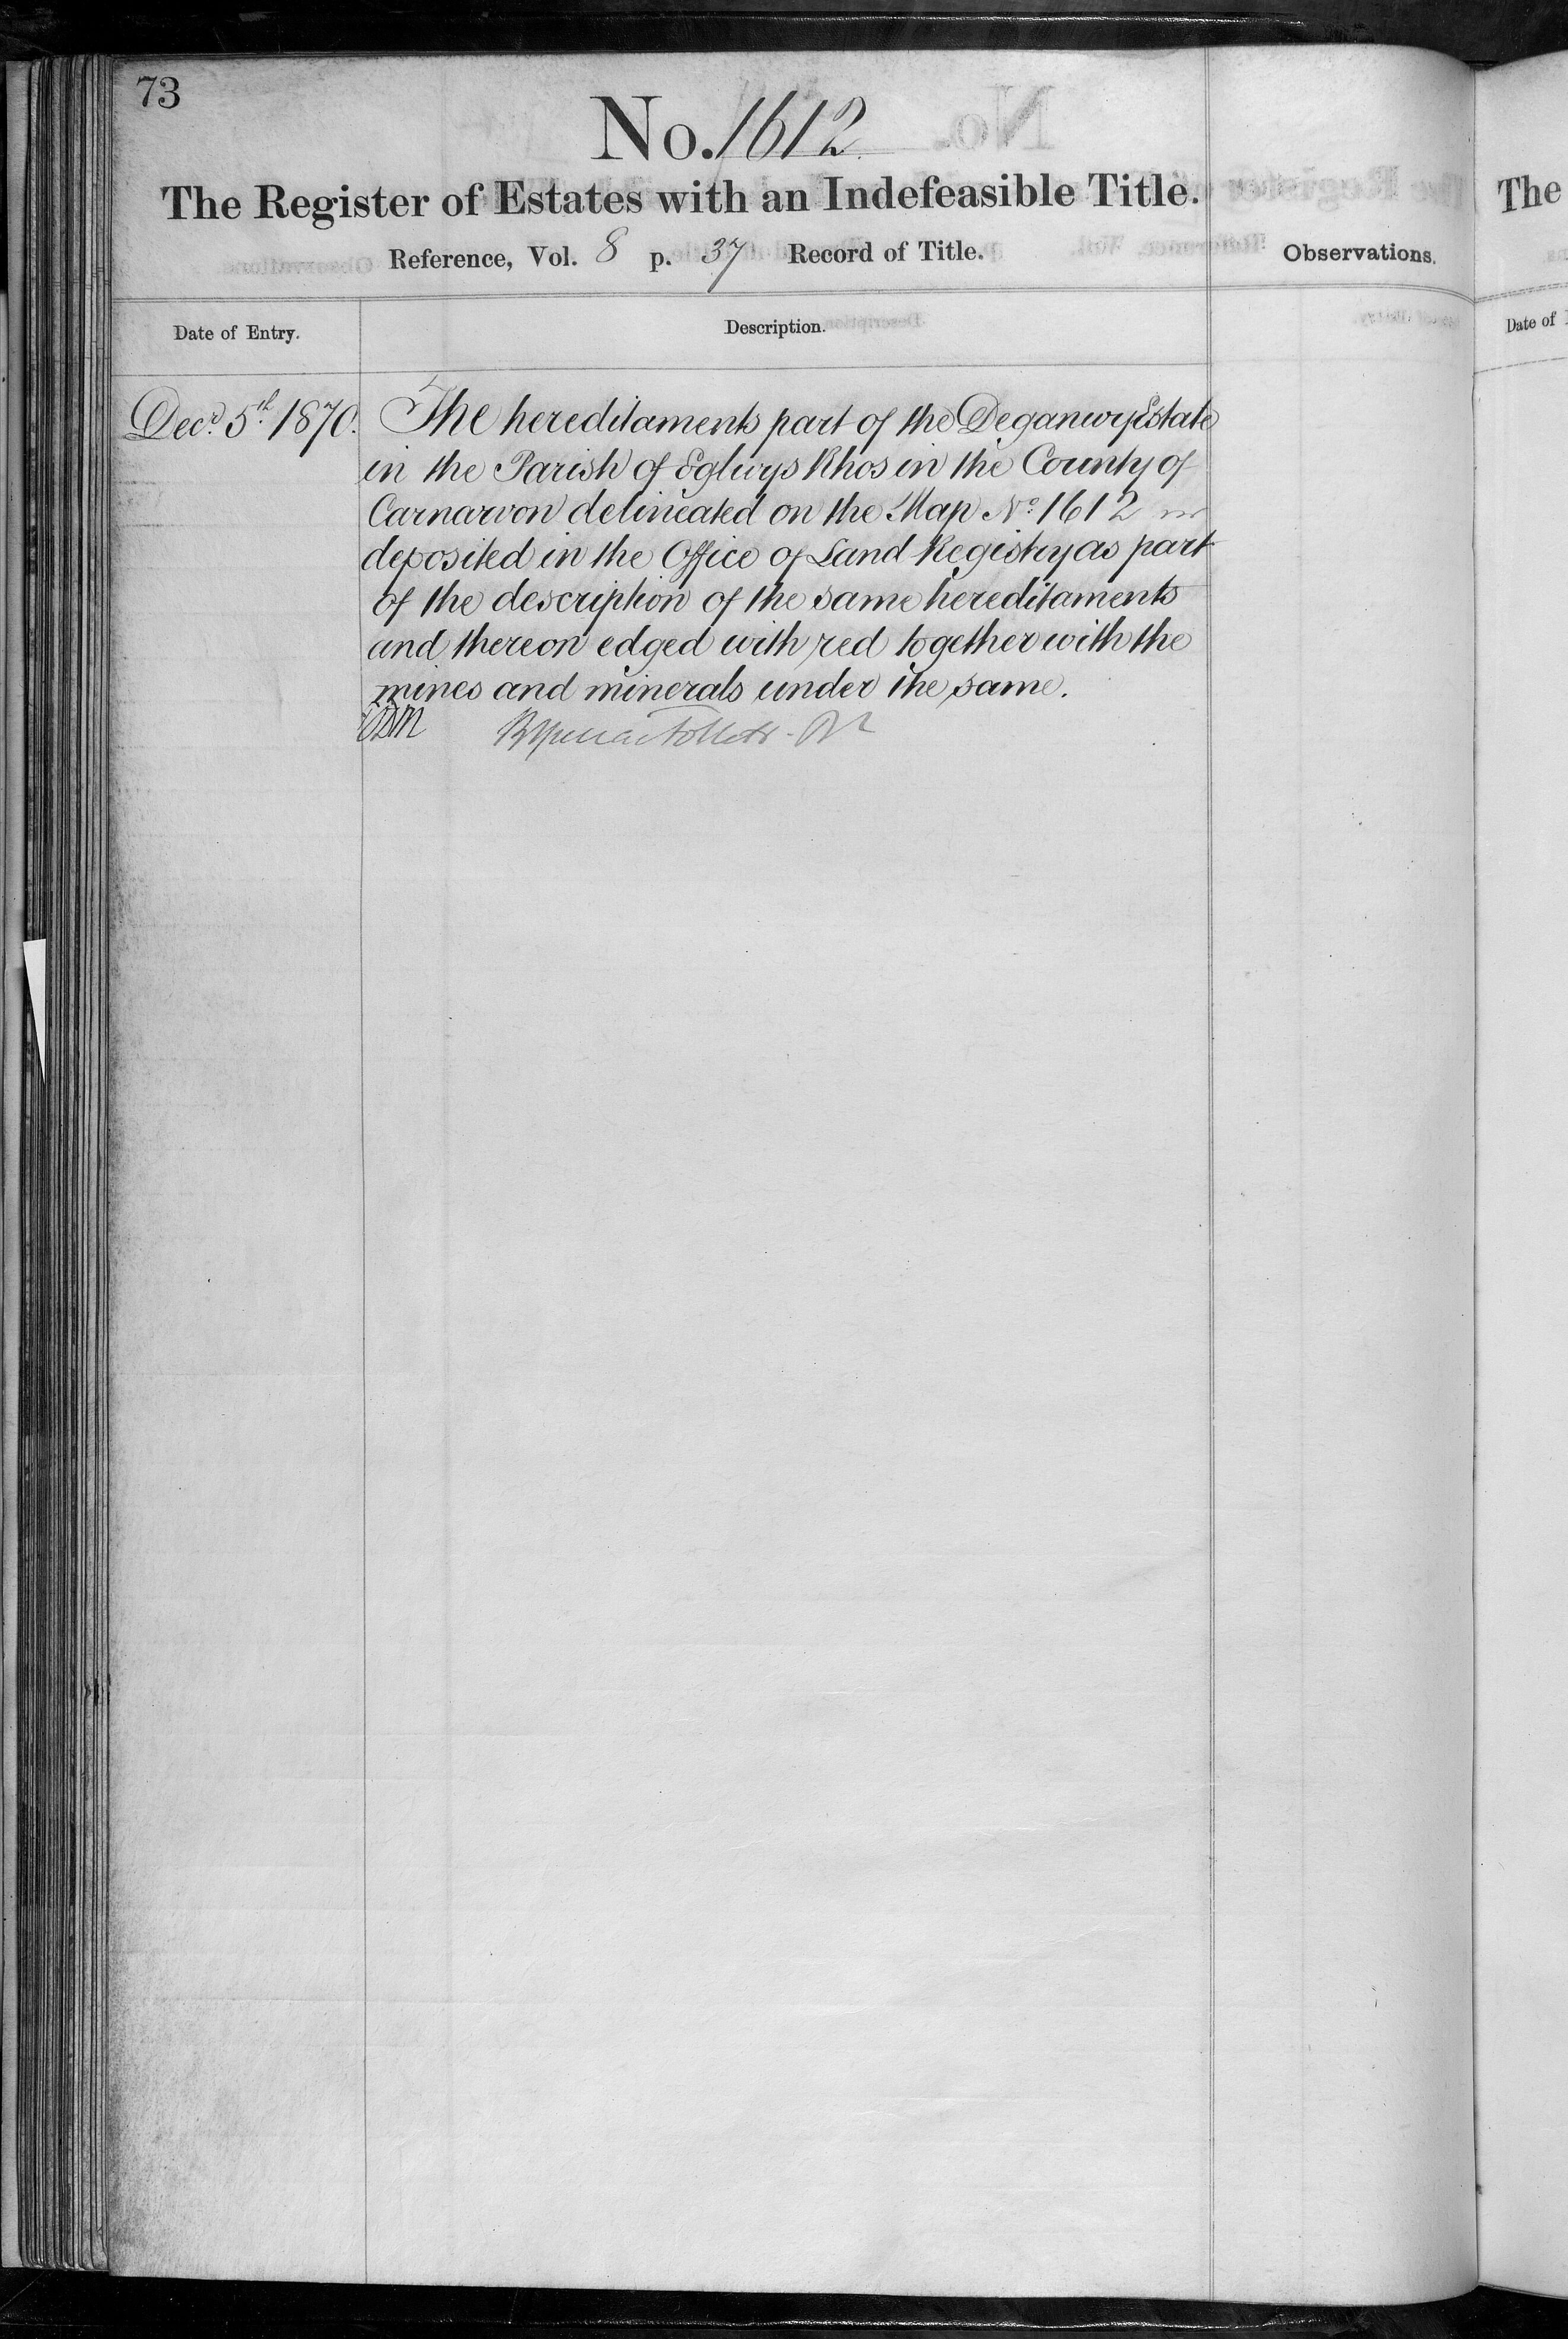 73
No. 1612
The Register of Estates with an Indefeasible Title.
Reference, Vol. 8 p. 37 Record of Title.
Observations.
Date of Entry.
Description.
Decr. 5th. 1870.
The hereditaments part of the Deganwy Estate
in the Parish of Eglwys Rhos in the County of
Carnarvon delineated on the Map No. 1612
deposited in the Office of Land Registry as part
of the description of the same hereditaments
and thereon edged with red together with the
mines and minerals under the same.
The
Date of